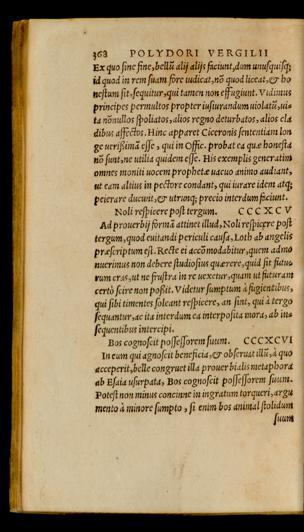 368 POLYDORI VERGILII
Ex quo sine fine, bellũ alij alijs faciunt, dum unusquisq;
id quod in rem suam fore iudicat, nõ quod liceat, & ho
nestum sit, sequitur, qui tamen non effugiunt. Vidimus
principes permultos propter iusiurandum uiolatũ, ui-
ta nõnullos spoliatos, alios regno deturbatos, alios cla
dibus affectos. Hinc apparet Ciceronis sententiam lon
ge uerißimã esse, qui in Offic. probat ea quæ honesta
nõ sunt, ne utilia quidem esse. His exemplis generatim
omnes moniti uocem prophetæ uacuo animo audiant,
ut eam altius in pectore condant, qui iurare idem atq;
peierare ducunt, & utrunq; precio interdum faciunt.
Noli respicere post tergum. CCCXCV
Ad prouerbij formã attinet illud, Noli respicere post
tergum, quod euitandi periculi causa, Loth ab angelis
præscriptum est. Recte ei accõmodabitur, quem admo
nuerimus non debere studiosius quærere, quid sit futu-
rum cras, ut ne frustra in re uexetur, quam ut futuram
certò scire non poßit. Videtur sumptum à fugientibus,
qui sibi timentes solent respicere, an sint, qui à tergo
sequantur, ac ita interdum ea interposita mora, ab in-
sequentibus intercipi.
Bos cognoscit possessorem suum. CCCXCVI
In eum qui agnoscit beneficia, & obseruat illũ, à quo
acceperit, belle congruet illa prouerbialis metaphora
ab Esaia usurpata, Bos cognoscit possessorem suum.
Potest non minus concinne in ingratum torqueri, argu
mento à minore sumpto, si enim bos animal stolidum
suum